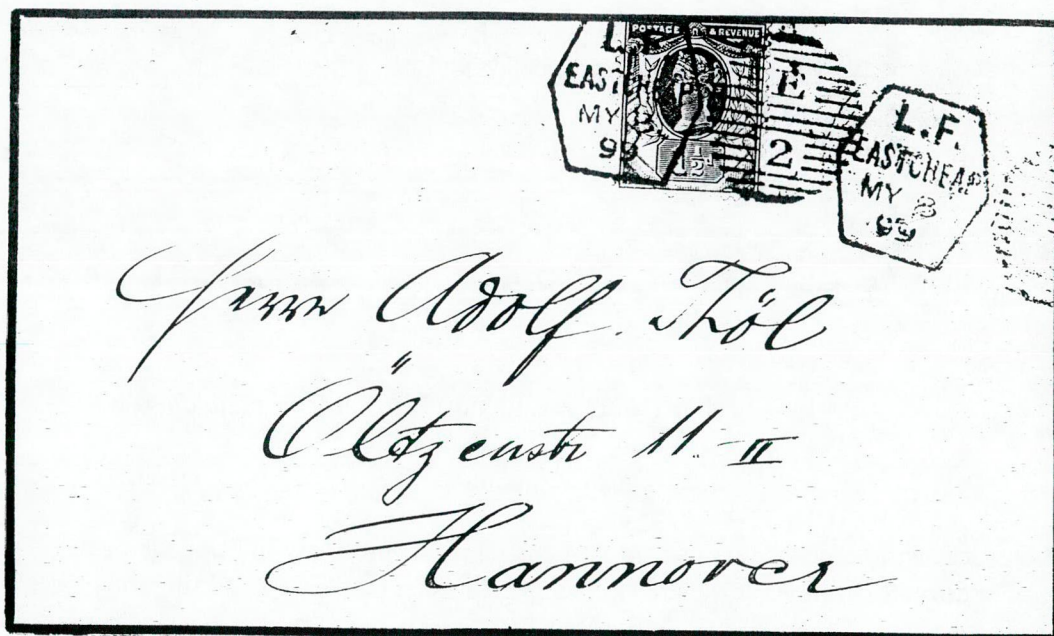 POSTAGE & REVENUE
L.F.
EASTCHEAP
MY 8
99
1½d
E
2
L.F.
EASTCHEAP
MY 8
99
Herrn Adolf Thöl
Öltzenstr 11 II
Hannover